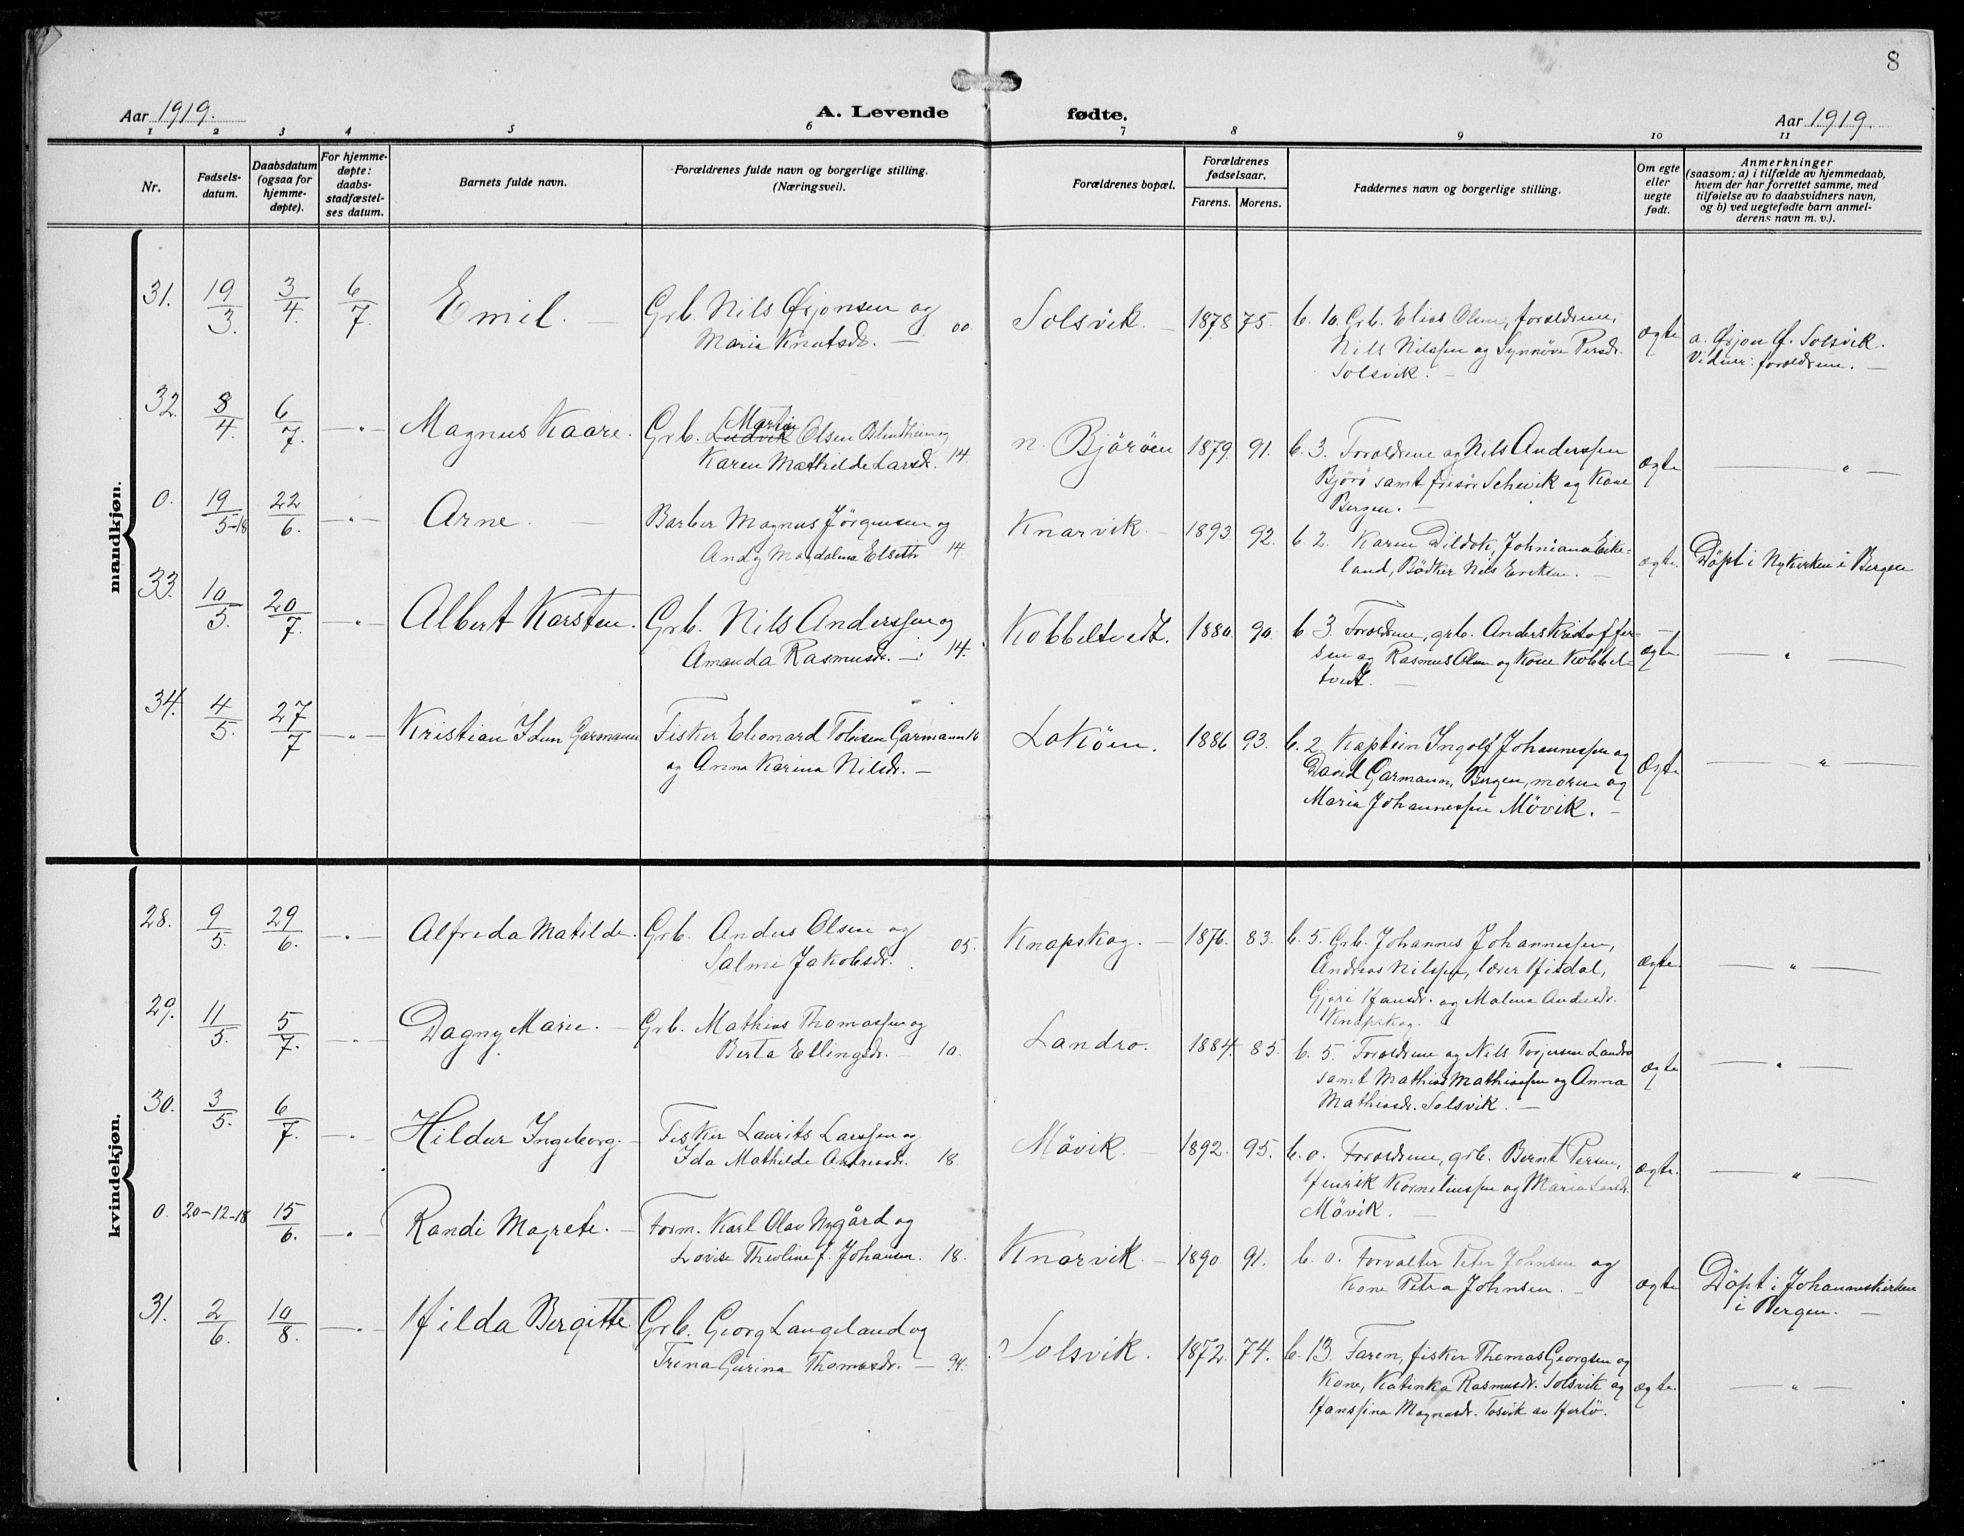 8
Aar 1919.
A. Levende fødte.
Aar 1919.
1 2 3 4 5 6 7 8 9 10 11
Nr.
Fødsels-
datum.
Daabsdatum
(ogsaa for
hjemme-
døpte).
For hjemme-
døpte:
daabs-
stadfæstel-
ses datum.
Barnets fulde navn.
Forældrenes fulde navn og borgerlige stilling.
(Næringsvei).
Forældrenes bopæl.
Forældrenes
fødselsaar.
Farens. Morens.
Faddernes navn og borgerlige stilling.
Om egte
eller
uegte
født.
Anmerkninger
(saasom: a) i tilfælde av hjemmedaab,
hvem der har forrettet samme, med
tilføielse av to daabsvidners navn,
og b) ved uegtefødte barn anmel-
derens navn m. v.).
mandkjøn.
31. 19/3. 3/4. 6/7. Emil. — Grb. Nils Øsjonsen og
Maria Knutsdr. — 00
Solsvik. — 1878 75.
b. 10. Grb. Elias Olsen, forældrene,
Nils Nilssen og Synnøve Persdr.
Solsvik. —
ægte
a. Øsjon Ø. Solsvik.
Vidner: forældrene. —
32. 8/4. 6/7. —"— Magnus Kaare. Grb. Ludvik Martin Olsen Blindheim og
Karen Mathilde Larsdr. 14.
n. Bjørøen 1879. 91.
b. 3. Forældrene og Nils Anderssen
Bjørø samt frisør Schevik og Kone
Bergen. —
ægte
— " —
0. 19/5-18 22/6. —"— Arne. — Barber Magnus Jörgensen og
Andy Magdalena Elseth 14.
Knarvik. — 1893. 92.
b. 2. Karen Dildok, Johniana Eike-
land, Bødker Nils Eriksen. —
ægte.
Döpt i Nykirken i Bergen
33. 10/5. 20/7. —"— Albert Karsten. Grb. Nils Anderssen og
Amanda Rasmusdr. — 14.
Kobbeltvedt. 1880. 90.
b. 3. Forældrene, grb. Anders Kristoffer-
sen og Rasmus Olsen og Kone Kobbel-
tvedt. —
ægte
— " —
34. 4/5. 27/7 —"— Kristian Idun Garmann Fisker Eleonard Tobisen Garmann 16
og Anna Karina Nilsdr. —
Lokøen. 1886 93.
b. 2. Kaptein Ingolf Johannessen og
David Garmann, Bergen, moren og
Maria Johannessen Møvik. —
ægte
— " —
kvindekjøn.
28. 9/5. 29/6. —"— Alfreda Matilde. Grb. Anders Olsen og
Salmi Jakobsdr. 05.
Knapskog. — 1876. 83.
b. 5. Grb. Johannes Johannessen,
Andreas Nilssen, lærer Hisdal,
Gjøri Hansdr. og Malena Andersdr.
Knapskog.
ægte
— " —
29. 11/5. 5/7. —"— Dagny Marie. — Grb. Mathias Thomassen og
Berta Ellingsdr. — 10.
Landro. 1884. 85.
b. 5. Forældrene og Nils Torjersen Landro
samt Mathias Mathiassen og Anna
Mathiasdr. Solsvik. —
ægte
— " —
30. 3/5. 6/7. —"— Hildur Ingeborg. — Fisker Laurits Larssen og
Ida Mathilde Andreasdr. 18.
Møvik. — 1892. 95.
b. 0. Forældrene, grb. Bernt Persen,
Henrik Korneliussen og Maria Larsdr.
Møvik. —
ægte.
— " —
0. 20-12-18 15/6. —"— Randi Magrete. — Form. Karl Olav Nygård og
Lovise Theoline f. Johansen. 18.
Knarvik. — 1890. 91.
b. 0. Forvalter Peter Johnsen og
Kone Petra Johnsen. —
ægte
Döpt i Johanneskirken
i Bergen. —
31. 2/6. 10/8. —"— Hilda Bergitte Grb. Georg Langeland og
Trina Gurina Thomasdr. — 94.
Solsvik. 1872. 74.
b. 13. Faren, fisker Thomas Georgsen og
Kone, Katinka Rasmusdr. Solsvik og
Hanssina Magnusdr. Tosvik av Hertö.
ægte
— " —